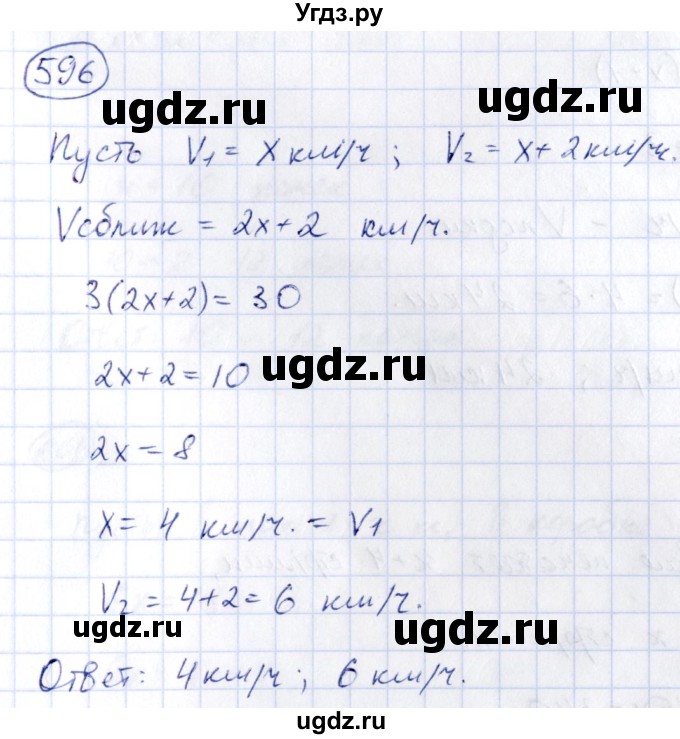 Угдз.ру
596
ugdz.ru ugdz.ru
Пусть V₁ = x км/ч ; V₂ = x + 2 км/ч.
Vсближ = 2x + 2 км/ч.
ugdz.ru
3(2x+2) = 30
ugdz.ru
2x + 2 = 10
2x = 8
ugdz.ru
x = 4 км/ч. = V₁
V₂ = 4+2 = 6 км/ч.
ugdz.ru ugdz.ru
Ответ: 4 км/ч ; 6 км/ч.
ugdz.ru